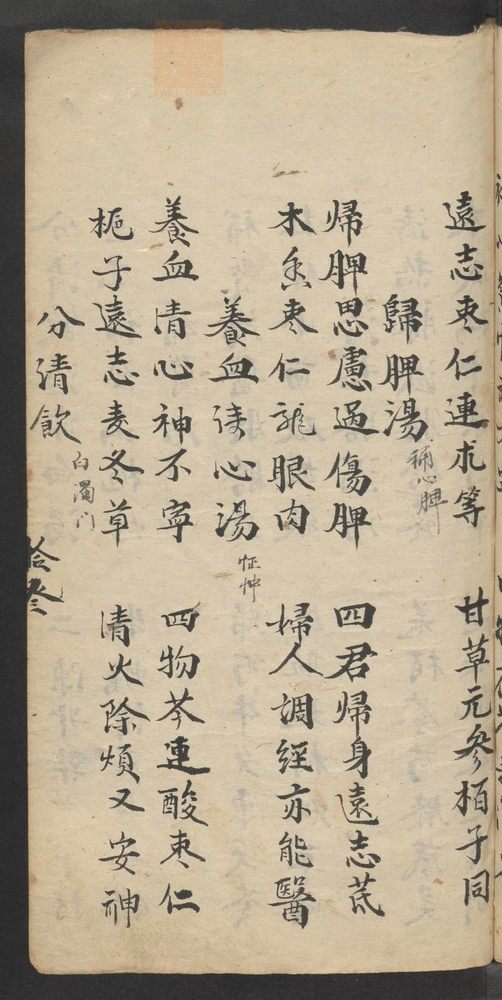 遠志枣仁連朮等　甘草元參栢子同
歸脾湯　補心脾
帰脾思慮過傷脾　四君帰身遠志芪
木香枣仁龍眼肉　婦人調經亦能醫
養血清心湯　怔忡
養血清心神不寧　四物芩連酸枣仁
栀子遠志麦冬草　清火除煩又安神
分清飲　白濁门
拾叁